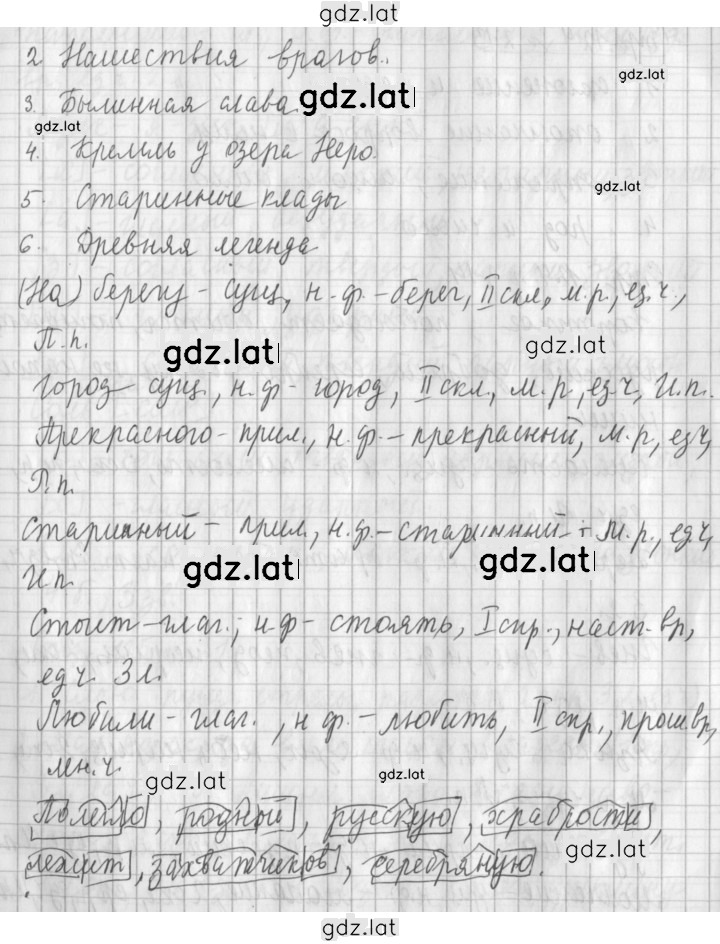 gdz.lat
2 Нашествия врагов.
gdz.lat
3. Былинная слава
gdz.lat
gdz.lat
4. Кремль у озера Неро.
gdz.lat
5. Старинные клады
6. Древняя легенда
(На) берегу - сущ, н.ф. - берег, II скл, м.р, ед.ч.,
П.п.
gdz.lat
gdz.lat
город - сущ., н.ф - город, II скл, м.р, ед.ч, И.п.
Прекрасного - прил., н.ф. - прекрасный, м.р, ед.ч,
Р.п.
старинный - прил, н.ф. - старинный м.р., ед.ч,
gdz.lat
gdz.lat
И.п.
Стоит - глаг., н.ф - стоять, I спр., наст. вр,
ед.ч. 3 л.
Любили - глаг., н.ф. - любить, II спр., прош.вр,
мн.ч.
gdz.lat
gdz.lat
родной, русскую, храбрости,
gdz.lat
лежит, захватчиков, серебряную.
gdz.lat